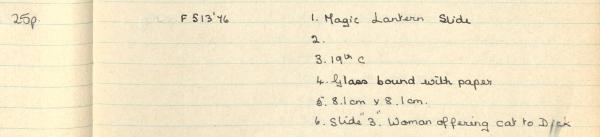 25p. F513'76 1. Magic Lantern Slide
2.
3. 19th C
4. Glass bound with paper
5. 8.1cm x 8.1cm.
6. Slide "3". Woman offering cat to Dick